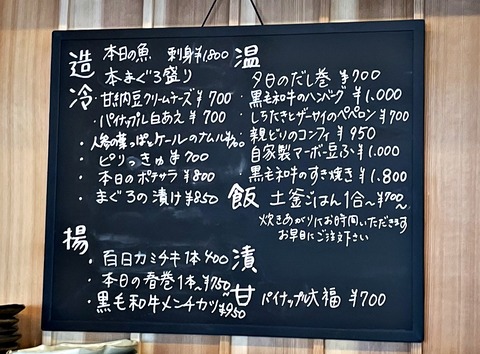 造
本日の魚 刺身¥1.800
本まぐろ盛り
冷
・甘納豆クリームチーズ¥700
・パイナップル白あえ¥700
・人参の葉っぱとケールのナムル¥700
・ピリっきゅ¥700
・本日のポテサラ¥800
・まぐろの漬け¥850
揚
・百日カミチキ1本400
・本日の春巻1本~¥750~
・黒毛和牛メンチカツ¥950
温
・夕日のだし巻¥700
・黒毛和牛のハンバーグ¥1.000
・しらたきとザーサイのペペロン¥700
・親どりのコンフィ¥950
・自家製マーボー豆ふ¥1.000
・黒毛和牛のすき焼き¥1.800
飯
土釜ごはん1合~¥700~
炊きあがりにお時間いただきます
お早目にご注文下さい
漬
甘
パイナップル大福¥700